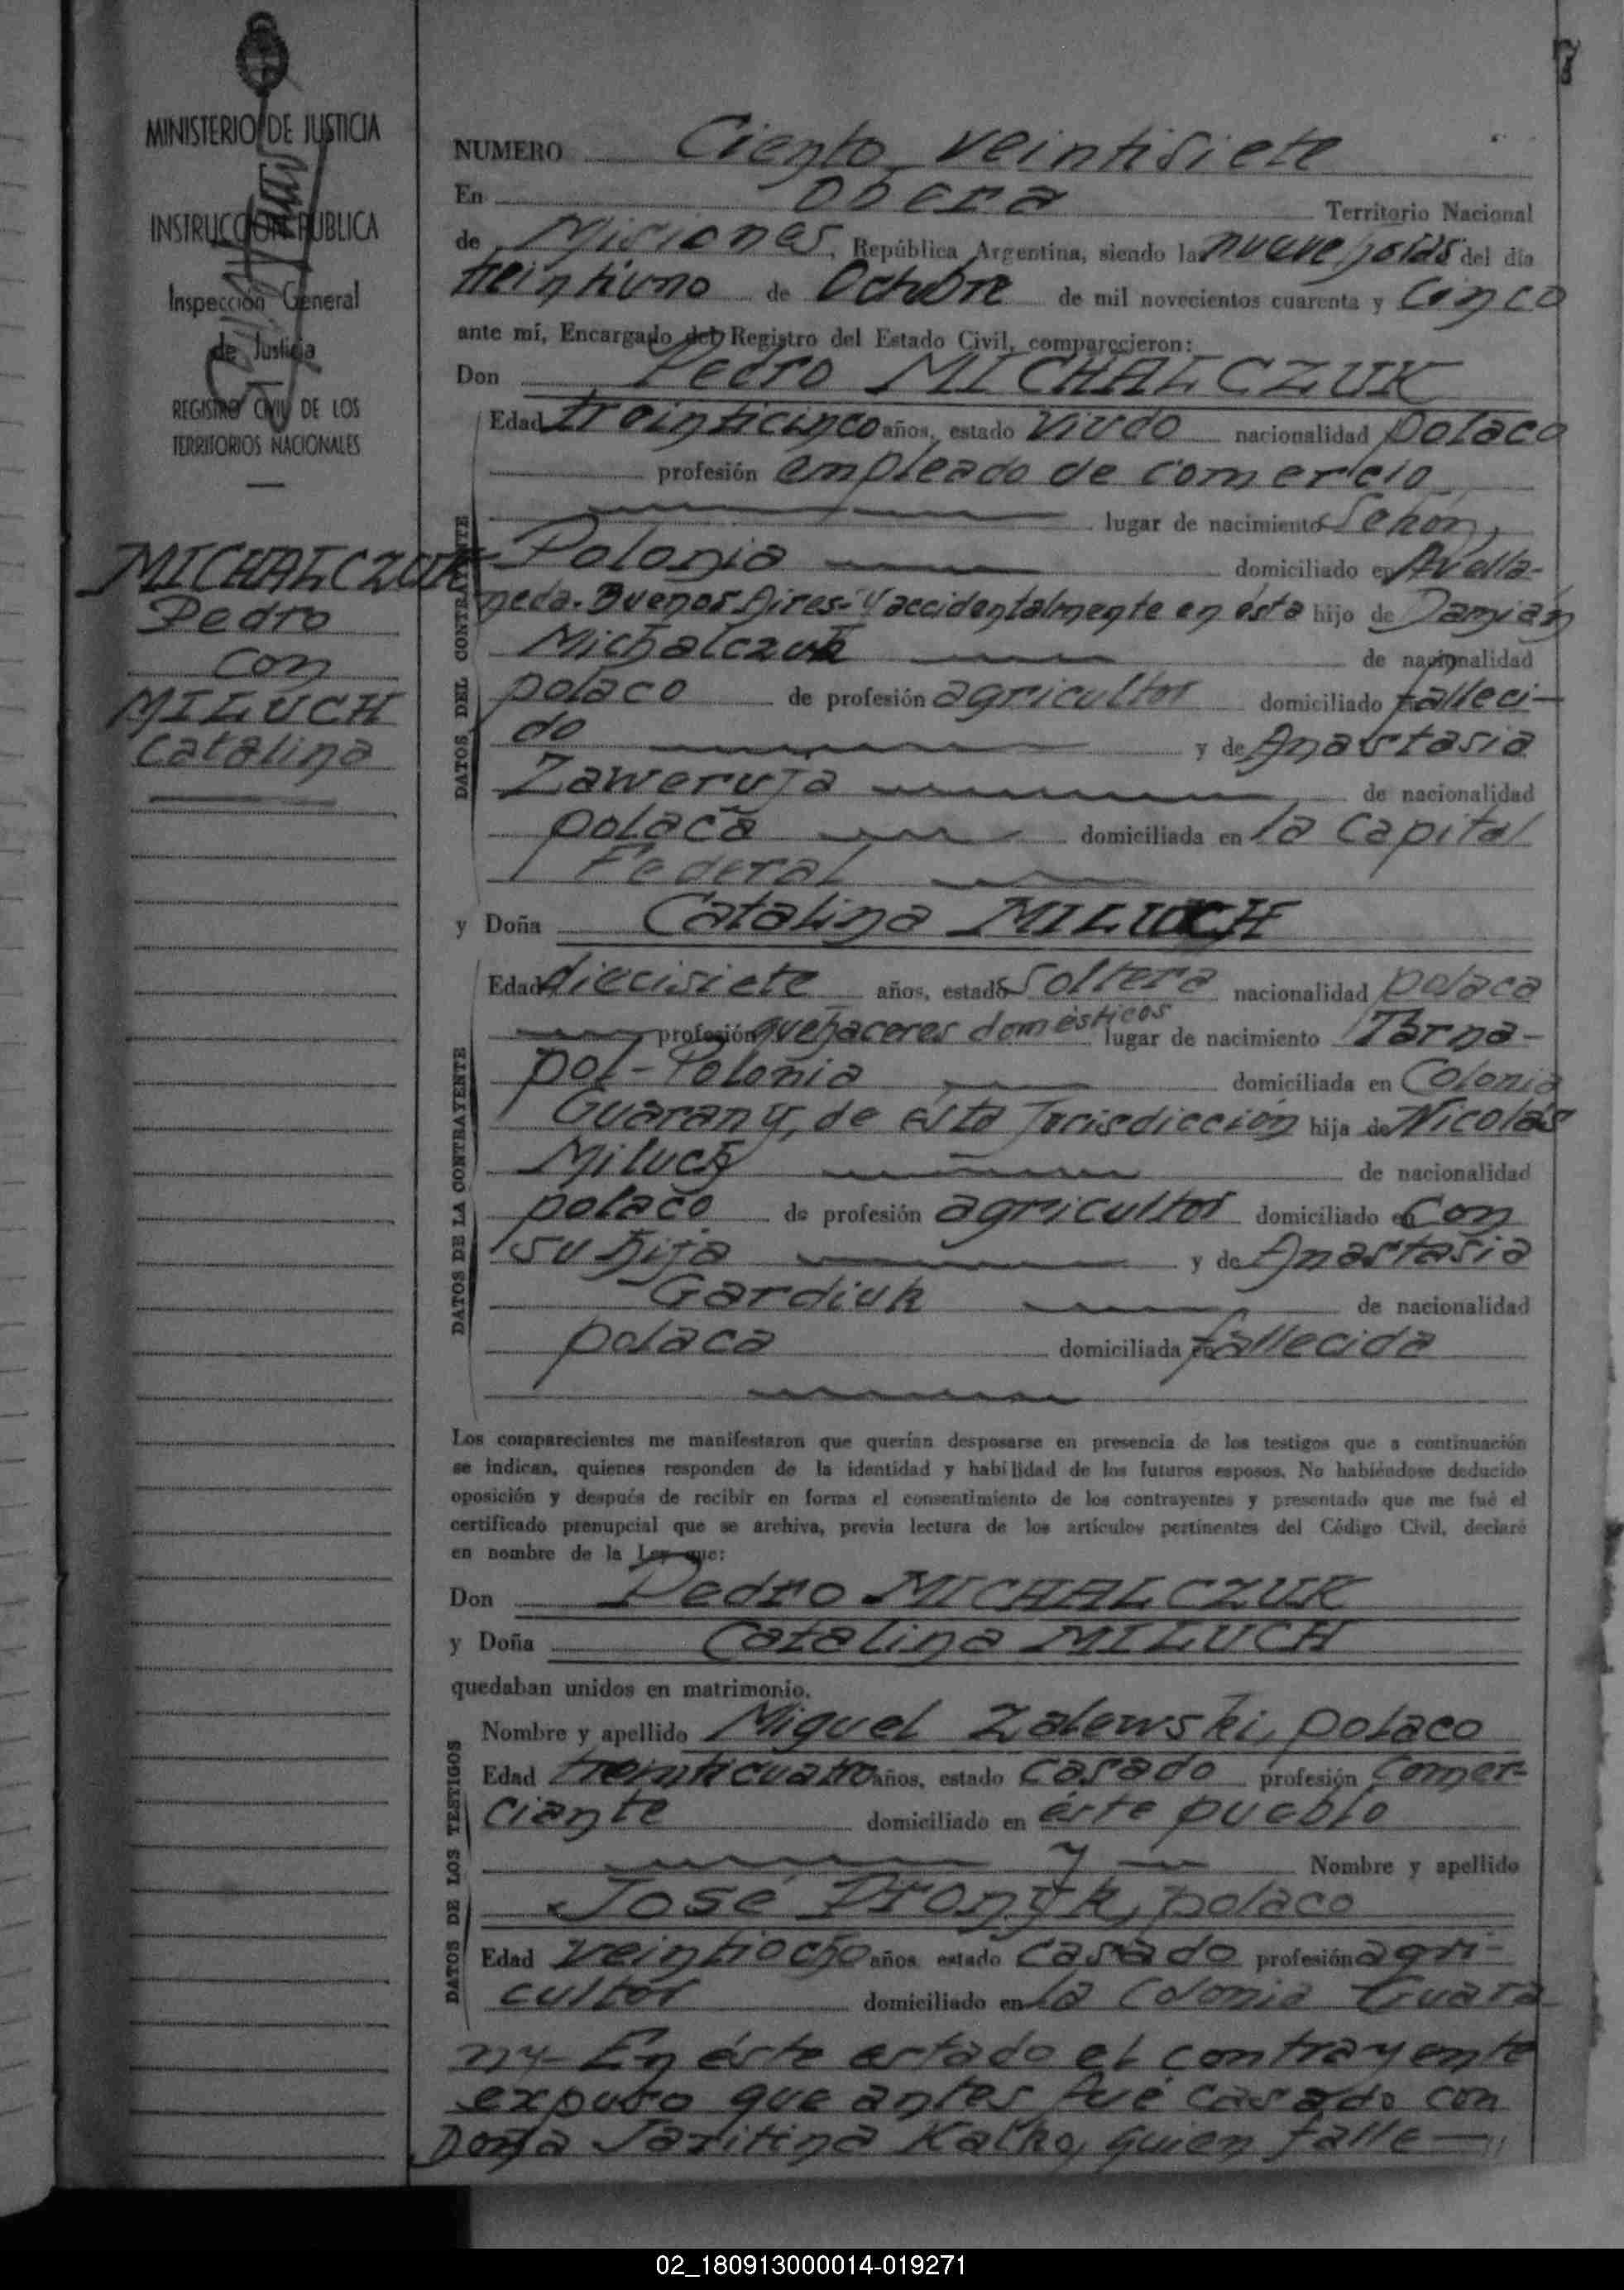 MINISTERIO DE JUSTICIA
INSTRUCCION PUBLICA
Inspección General
de Justicia
REGISTRO CIVIL DE LOS
TERRITORIOS NACIONALES
MICHALCZUK
Pedro
con
MILUCH
Catalina
NUMERO Ciento veintisiete
En Oberá Territorio Nacional
de Misiones, República Argentina, siendo las nueve horas del día
treintiuno de Octubre de mil novecientos cuarenta y cinco
ante mí, Encargado del Registro del Estado Civil, comparecieron:
Don Pedro MICHALCZUK
DATOS DEL CONTRAYENTE
Edad treinticinco años, estado viudo nacionalidad polaco
profesión empleado de comercio
lugar de nacimiento Sehon,
Polonia domiciliado en Avella-
neda. Buenos Aires-Y accidentalmente en ésta hijo de Damián
Michalczuk de nacionalidad
polaco de profesión agricultor domiciliado falleci-
do y de Anastasia
Zaweruja de nacionalidad
polaca domiciliada en la Capital
Federal
y Doña Catalina MILUCH
DATOS DE LA CONTRAYENTE
Edad diecisiete años, estado soltera nacionalidad polaca
profesión quehaceres domésticos lugar de nacimiento Tarna-
pol-Polonia domiciliada en Colonia
Guarany, de ésta Jurisdicción hija de Nicolás
Miluch de nacionalidad
polaco de profesión agricultor domiciliado en con
su hija y de Anastasia
Gardiuk de nacionalidad
polaca domiciliada fallecida
Los comparecientes me manifestaron que querían desposarse en presencia de los testigos que a continuación
se indican, quienes responden de la identidad y habilidad de los futuros esposos. No habiéndose deducido
oposición y después de recibir en forma el consentimiento de los contrayentes y presentado que me fué el
certificado prenupcial que se archiva, previa lectura de los artículos pertinentes del Código Civil, declaré
en nombre de la Ley que:
Don Pedro MICHALCZUK
y Doña Catalina MILUCH
quedaban unidos en matrimonio.
DATOS DE LOS TESTIGOS
Nombre y apellido Miguel Zalewski, polaco
Edad treinticuatro años, estado casado profesión comer-
ciante domiciliado en éste pueblo
y Nombre y apellido
José Dronyk, polaco
Edad veintiocho años estado casado profesión agri-
cultor domiciliado en la Colonia Guara
ny- En éste estado el contrayente
expuso que antes fué casado con
Doña Jaritina Kalko, quien falle-
02_180913000014-019271